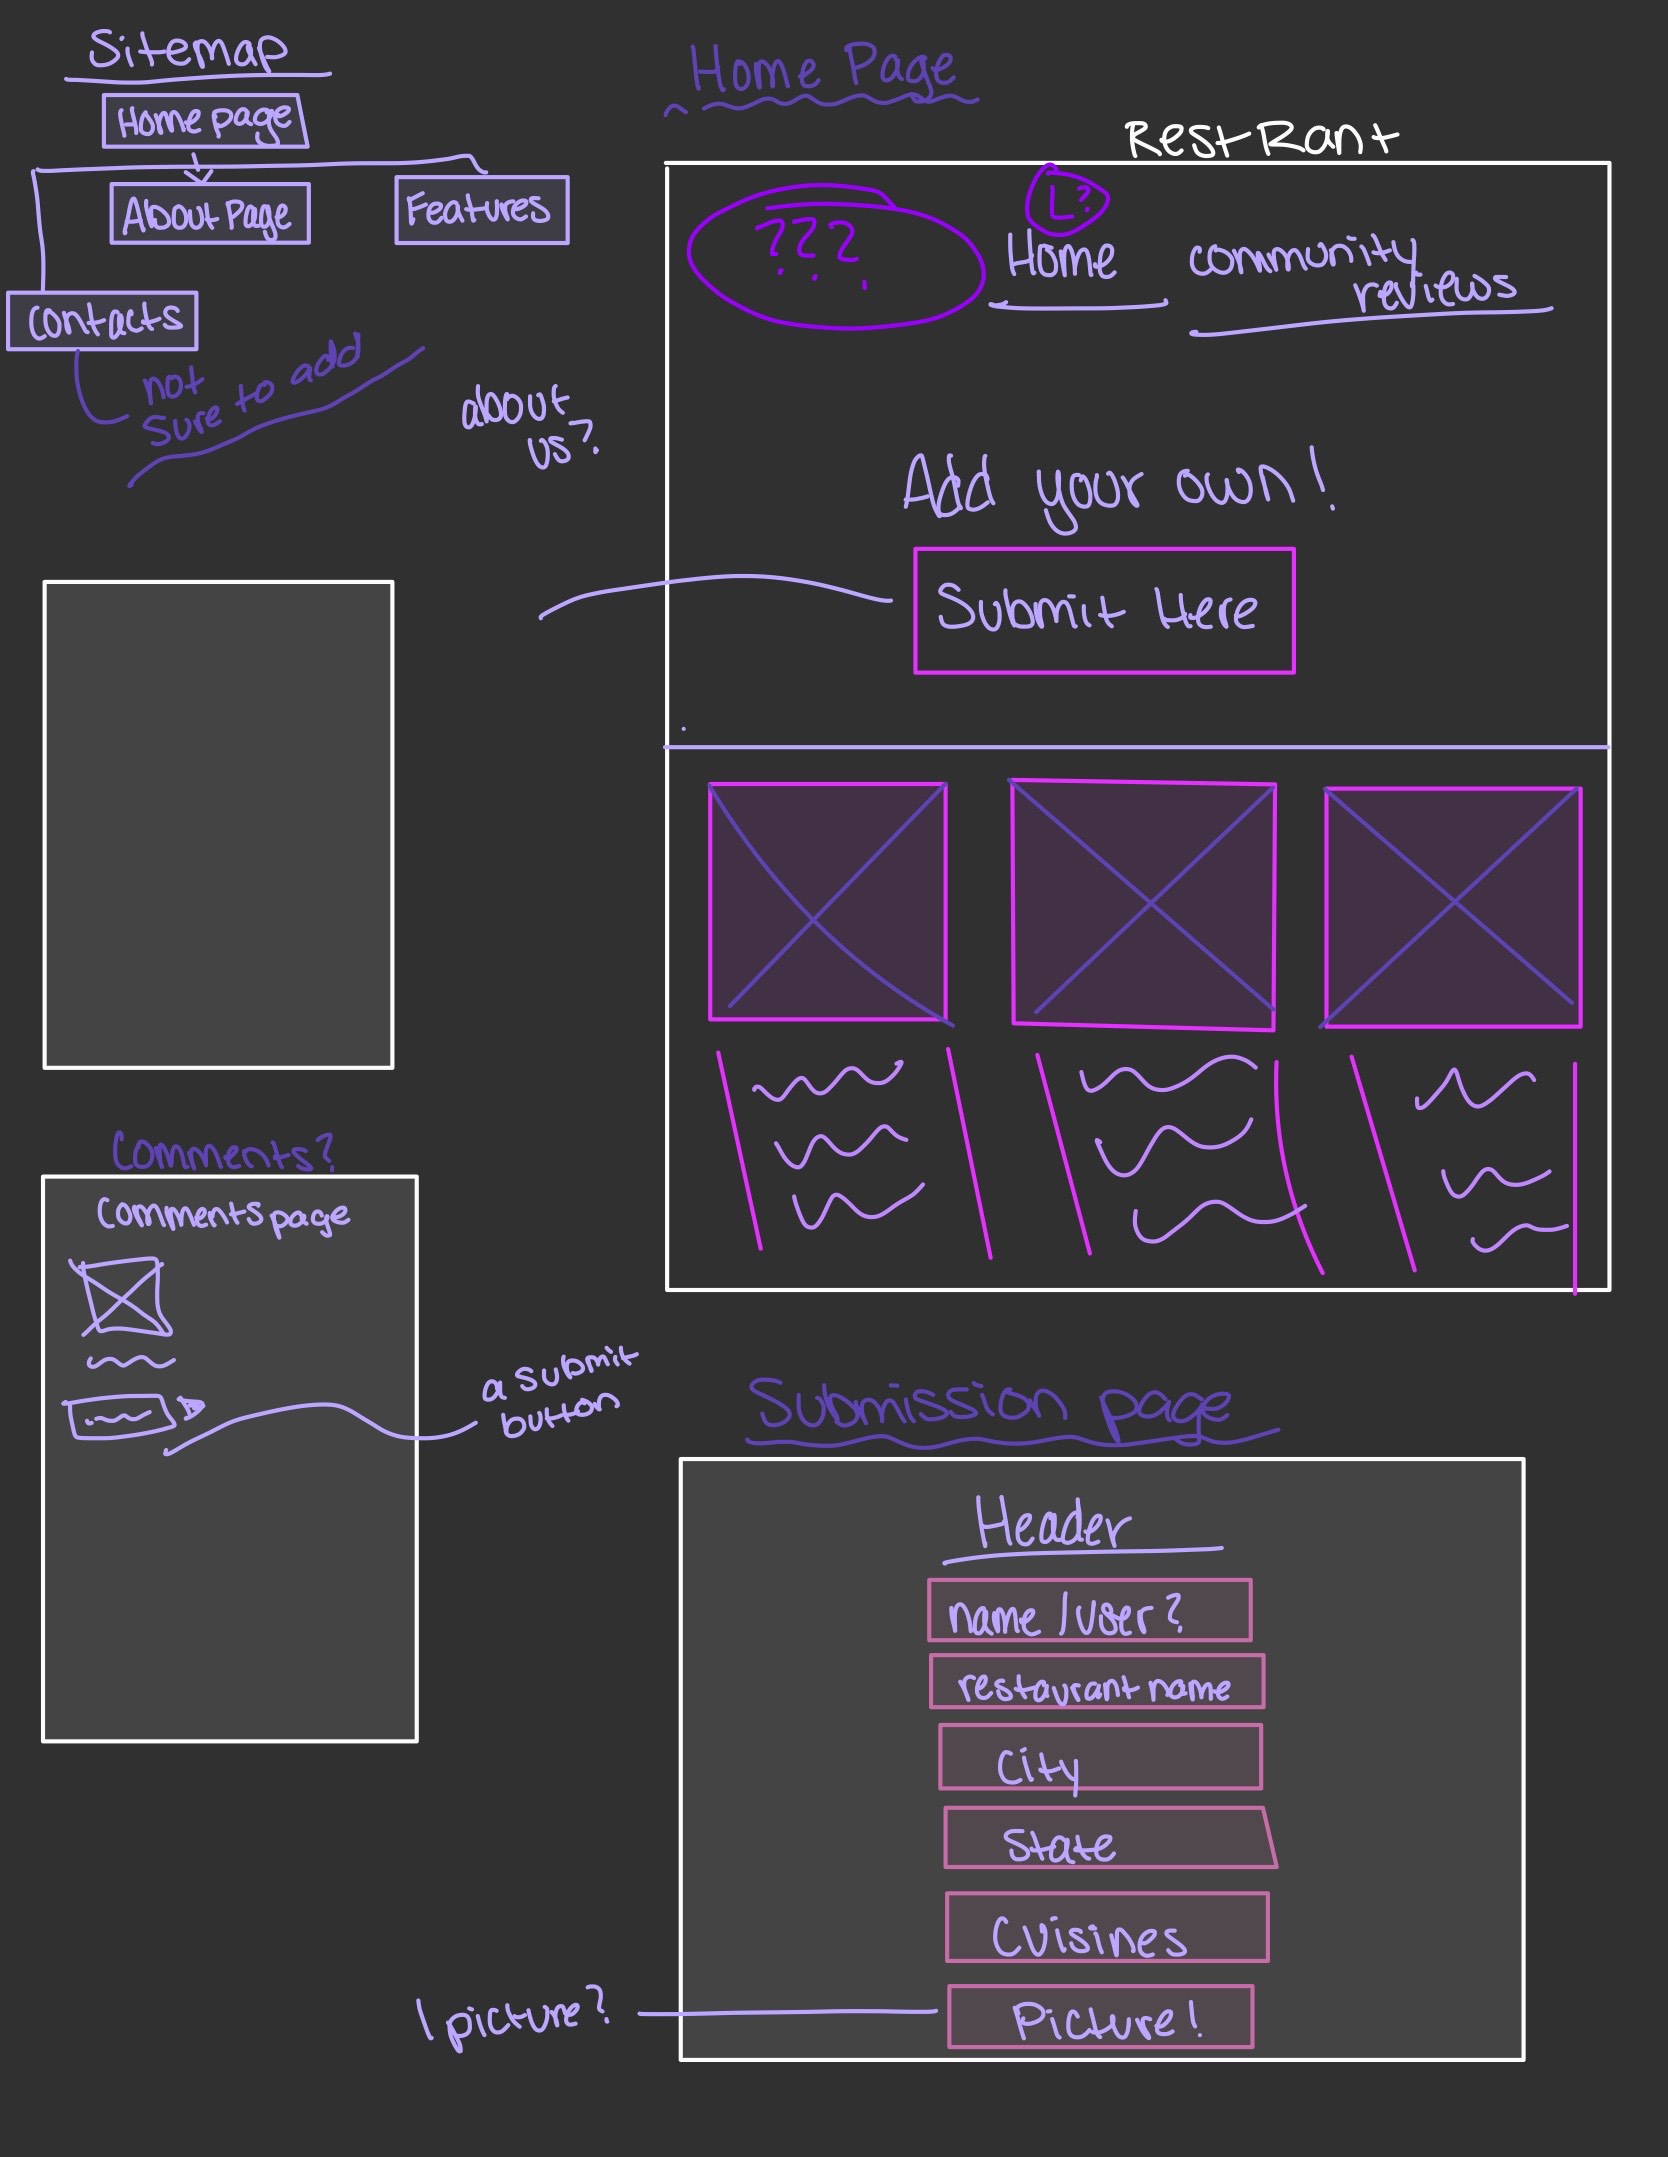 Sitemap
Home page
About Page
Features
Contacts
not
sure to add
about
us?
Home Page
RestRant
???
L?
Home
community
reviews
Add your own!
Submit Here
Comments?
Comments page
a submit
button
Submission page
Header
name / user?
restaurant name
City
State
Cuisines
Picture!
1 picture?